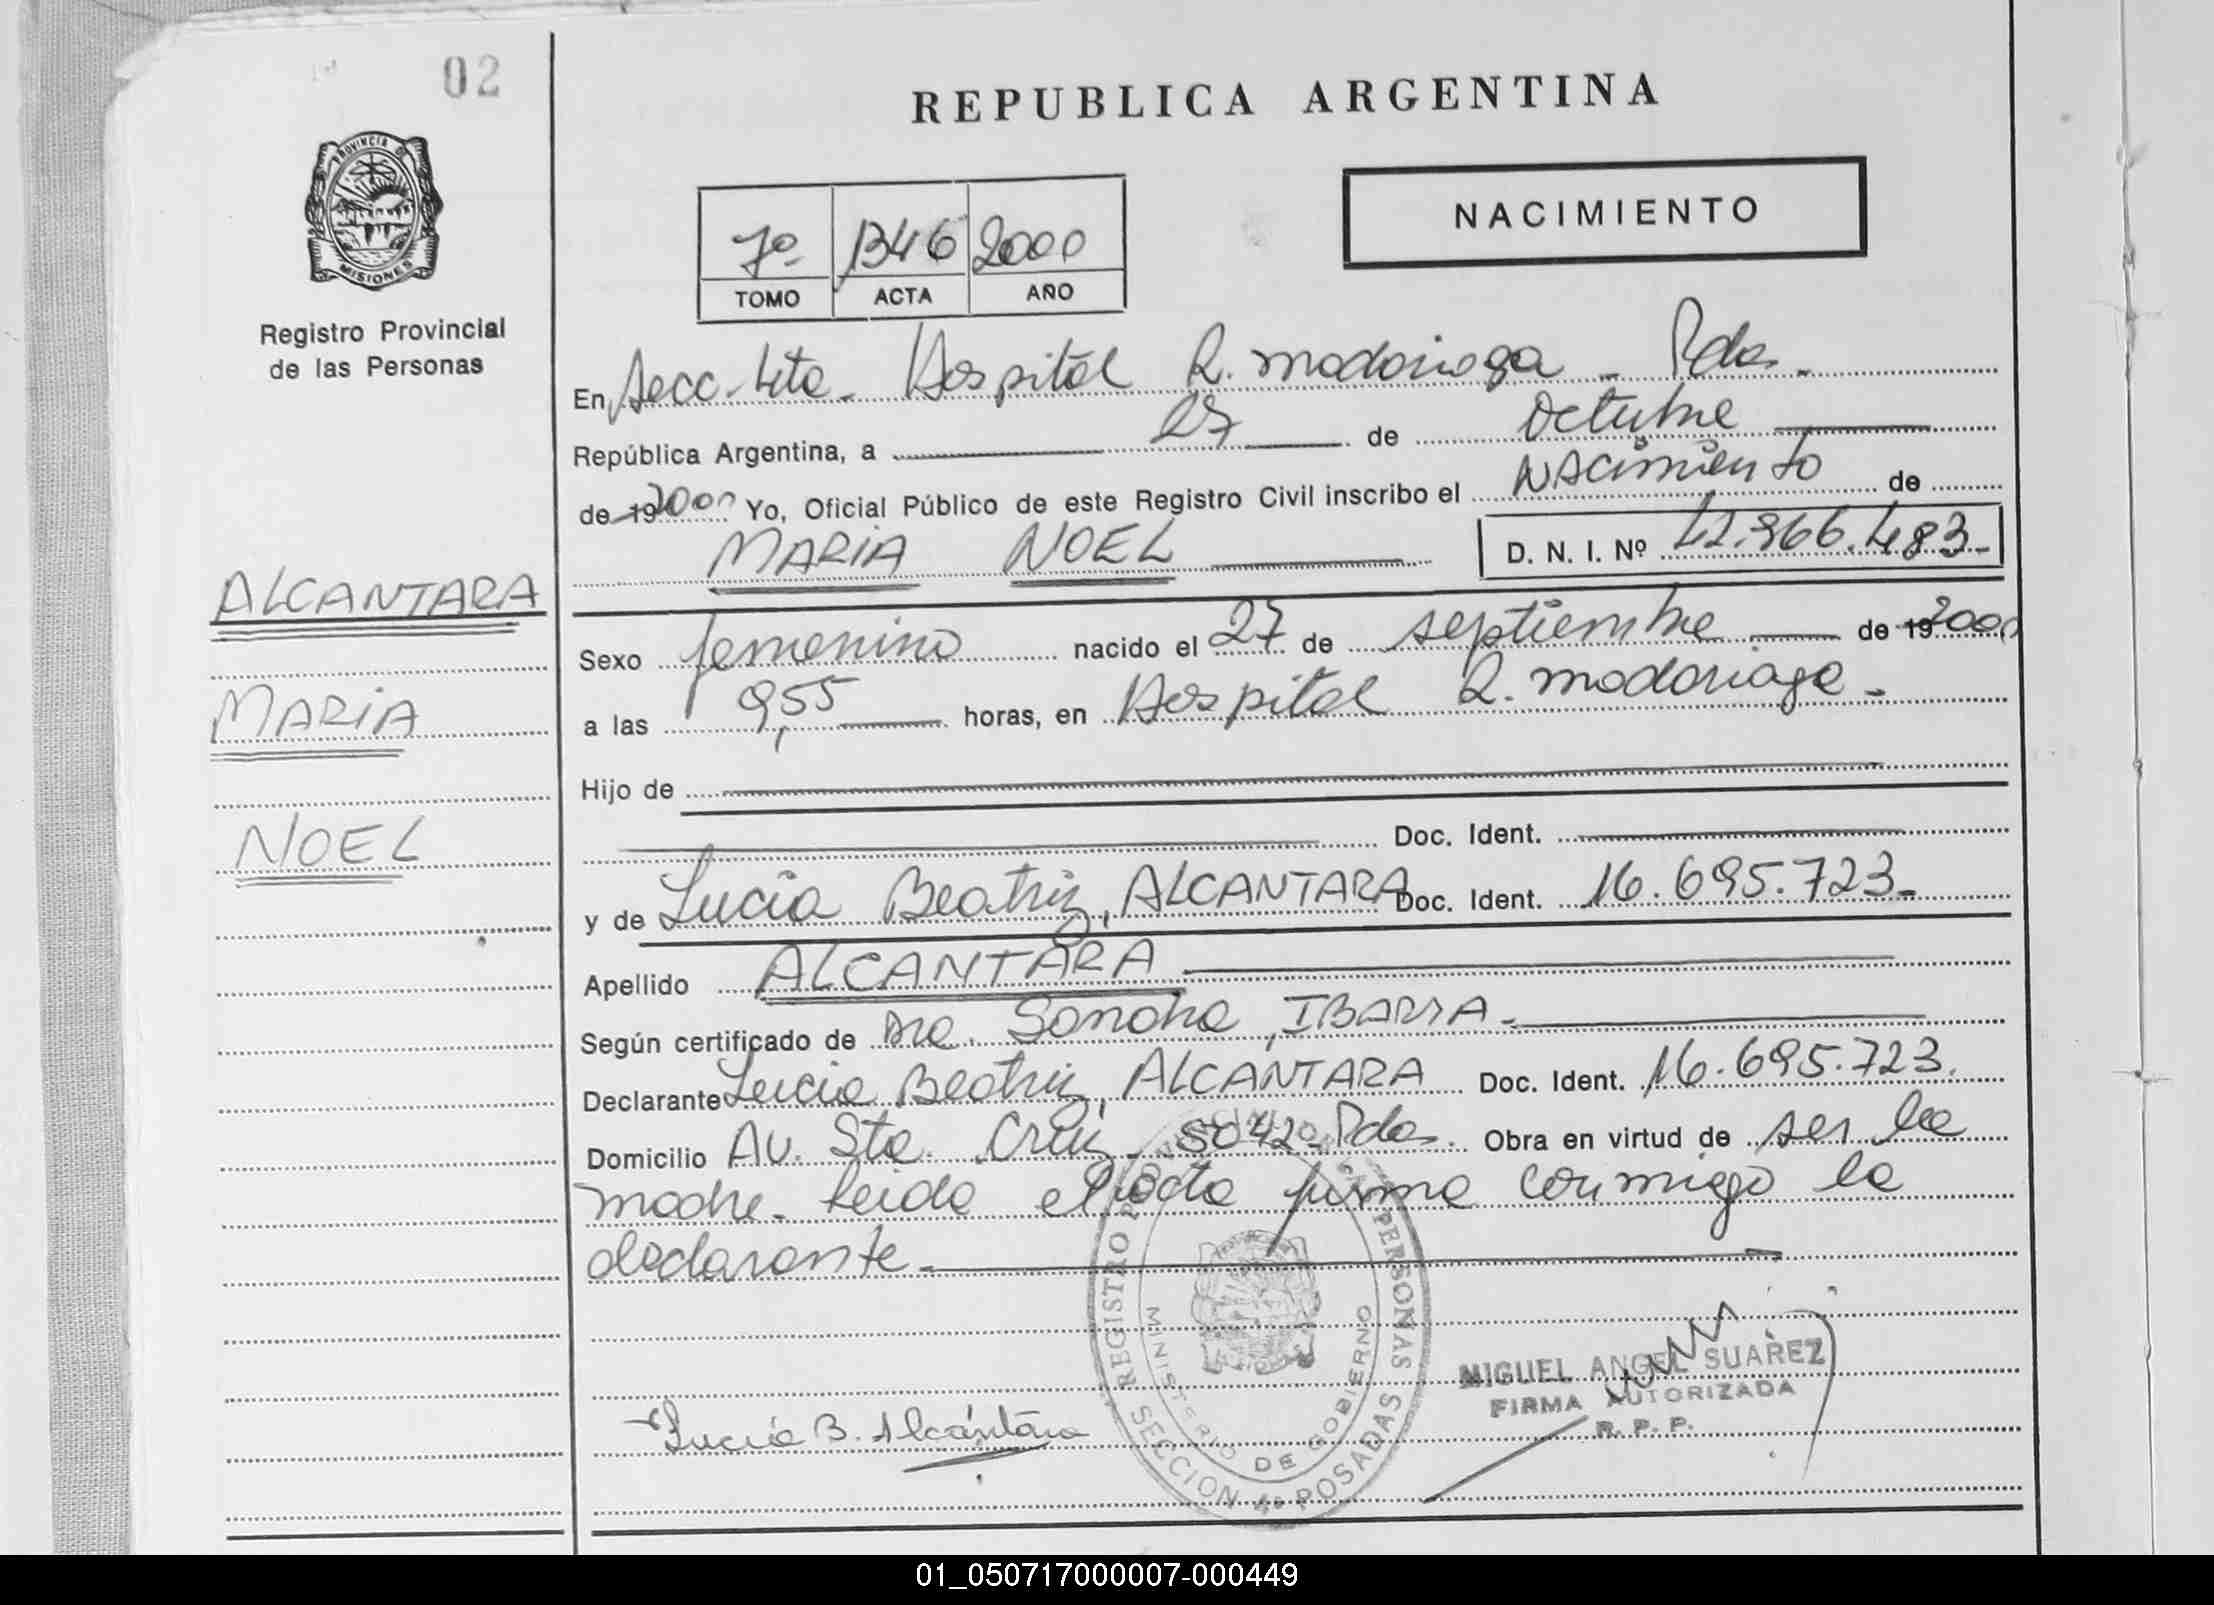 02
REPUBLICA ARGENTINA
PROVINCIA DE
MISIONES
NACIMIENTO
7º 1346 2000
TOMO ACTA AÑO
Registro Provincial
de las Personas
En Secc. 4ta. Hospital R. Madariaga - Pdas.
República Argentina, a 27 de Octubre
de 19 2000 Yo, Oficial Público de este Registro Civil inscribo el NACIMIENTO de
MARIA NOEL D. N. I. Nº 42.966.483-
ALCANTARA
Sexo femenino nacido el 27 de septiembre de 19 2000
MARIA
a las 9,55 horas, en Hospital R. Madariaga -
Hijo de
Doc. Ident.
NOEL
y de Lucia Beatriz, ALCANTARA Doc. Ident. 16.695.723-
Apellido ALCANTARA
Según certificado de Dra. Sandra, IBARRA -
Declarante Lucia Beatriz, ALCANTARA Doc. Ident. 16.695.723.
Domicilio Av. Sta. Cruz 5042 - Pdas. Obra en virtud de ser la
madre. Leida el acta firma conmigo la
declarante -
REGISTRO PROVINCIAL DE LAS PERSONAS
MINISTERIO DE GOBIERNO
SECCION 4º POSADAS
MIGUEL ANGEL SUAREZ
FIRMA AUTORIZADA
R. P. P.
Lucía B. Alcántara
01_050717000007-000449